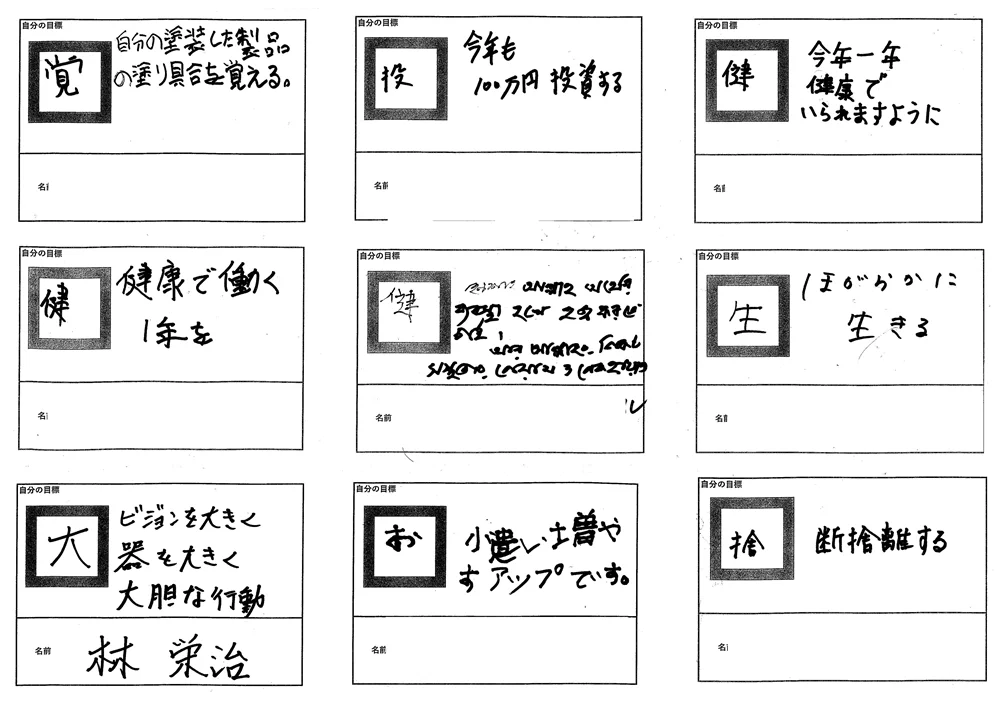 自分の目標
覚
自分の塗装した製品
の塗り具合を覚える。
名前
自分の目標
投
今年も
100万円 投資する
名前
自分の目標
健
今年一年
健康で
いられますように
名前
自分の目標
健
健康で働く
1年を
名前
自分の目標
健
名前
自分の目標
生
ほがらかに
生きる
名前
自分の目標
大
ビジョンを大きく
器を大きく
大胆な行動
名前
林 栄治
自分の目標
お
小遣い増や
すアップです。
名前
自分の目標
捨
断捨離する
名